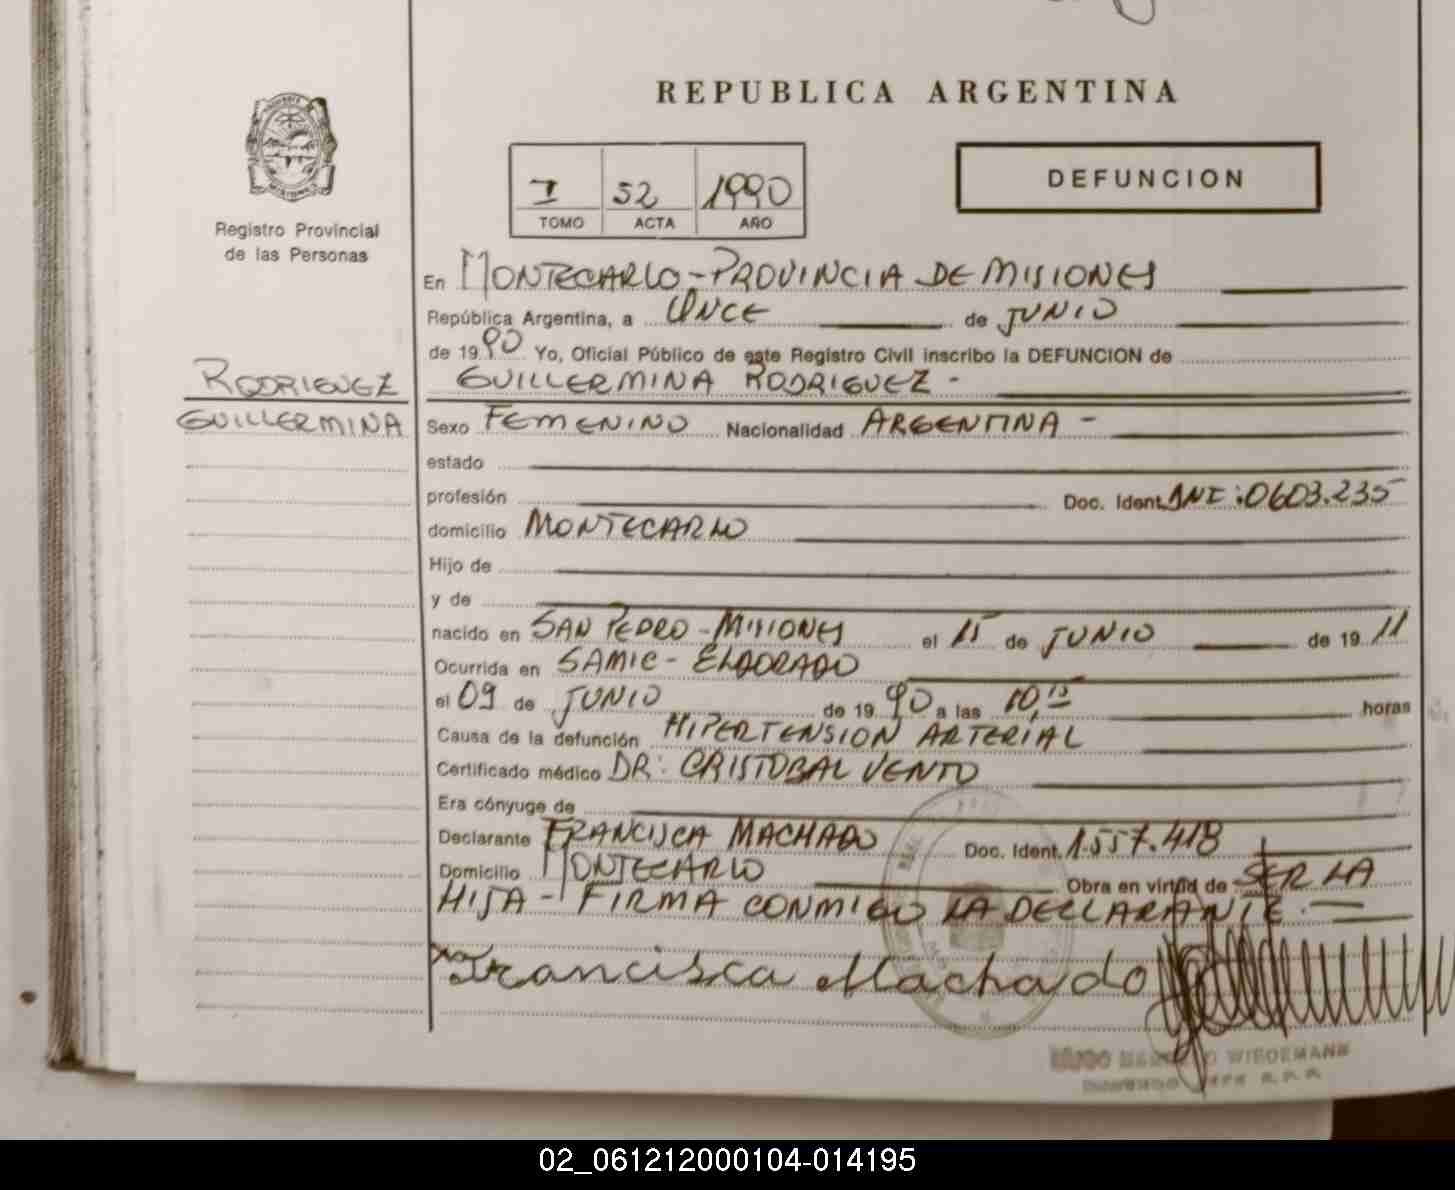 REPUBLICA ARGENTINA
I 52 1990
TOMO ACTA AÑO
DEFUNCION
Registro Provincial
de las Personas
RODRIGUEZ
GUILLERMINA
En MONTECARLO - PROVINCIA DE MISIONES
República Argentina, a ONCE de JUNIO
de 1990 Yo, Oficial Público de este Registro Civil inscribo la DEFUNCION de
GUILLERMINA RODRIGUEZ -
Sexo FEMENINO Nacionalidad ARGENTINA -
estado
profesión Doc. Ident. DNI: 0603.235
domicilio MONTECARLO
Hijo de
y de
nacido en SAN PEDRO - MISIONES el 15 de JUNIO de 1911
Ocurrida en SAMIC - ELDORADO
el 09 de JUNIO de 1990 a las 10,15 horas
Causa de la defunción HIPERTENSION ARTERIAL
Certificado médico DR: CRISTOBAL VENTO
Era cónyuge de
Declarante FRANCISCA MACHADO Doc. Ident. 1.557.418
Domicilio MONTECARLO Obra en virtud de SER LA
HIJA - FIRMA CONMIGO LA DECLARANTE. -
Francisca Machado
WIEDEMANN
02_061212000104-014195